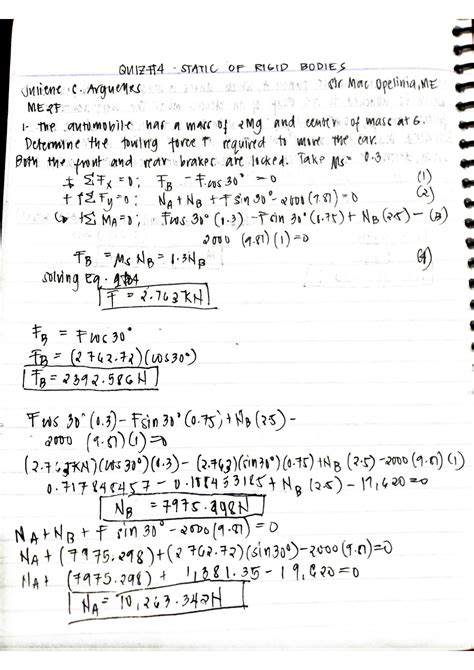 QUIZ#4 - STATIC OF RIGID BODIES
Juliene C. Arguelles Sir Mac Opelinia, ME
ME 2F
1. The automobile has a mass of 2Mg and center of mass at G.
Determine the towing force F required to move the car.
Both the front and rear brakes are locked. Take Ms = 0.3
+ ΣFx = 0; FB - Fcos30° = 0 (1)
+↑ΣFy = 0; NA + NB + Fsin30° - 2000(9.81) = 0 (2)
+ΣMA = 0; Fcos30°(0.3) - Fsin30°(0.75) + NB(2.5) - (3)
2000 (9.81)(1) = 0
FB = Ms NB = 0.3NB (4)
solving Eq.
F = 2.763KN
FB = Fcos30°
FB = (2762.72)(cos30°)
FB = 2392.586N
Fcos 30°(0.3) - Fsin30°(0.75) + NB(2.5) -
2000 (9.81)(1) = 0
(2.763KN)(cos30°)(0.3) - (2.763)(sin30°)(0.75) + NB(2.5) - 2000(9.81)(1)
+ NB(2.5) - 19,620 = 0
NB = 7975.298N
NA + NB + F sin 30° - 2000(9.81) = 0
NA + (7975.298) + (2762.72)(sin30°) - 2000(9.81) = 0
NA + (7975.298) + 1,381.35 - 19,620 = 0
NA = 10,263.342N